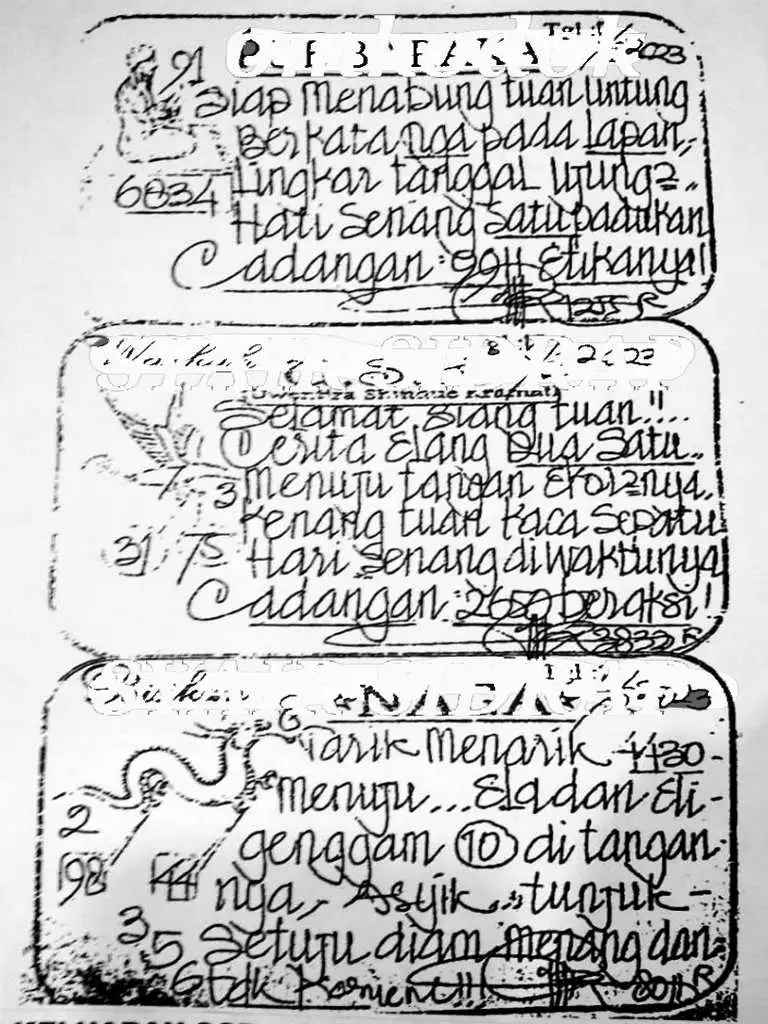 Tgl:
2023
91
Siap Menabung tuan untung
Berkata nga pada Lapan,,
6834
Lingkar tanggal ujung2..
Hati Senang Satu padukan
Cadangan: 9911 Etikanya!
1255 R
2023
Selamat Siang tuan!!...
Cerita Elang Dua Satu..
3
Menuju tangan Ekor2nya.
Kenang tuan Kaca Sepatu
31 75
Hari Senang di waktunya
Cadangan: 2650 beraksi!
3832 R
NAGA
6
Tarik Menarik 4430-
Menuju... Eladan Eli-
2
genggam 10 di tangan-
98 44
nga,- Asyik... tunjuk-
3
5
Setuju diam menang dan-
6
tdk Koment!!
8011 R